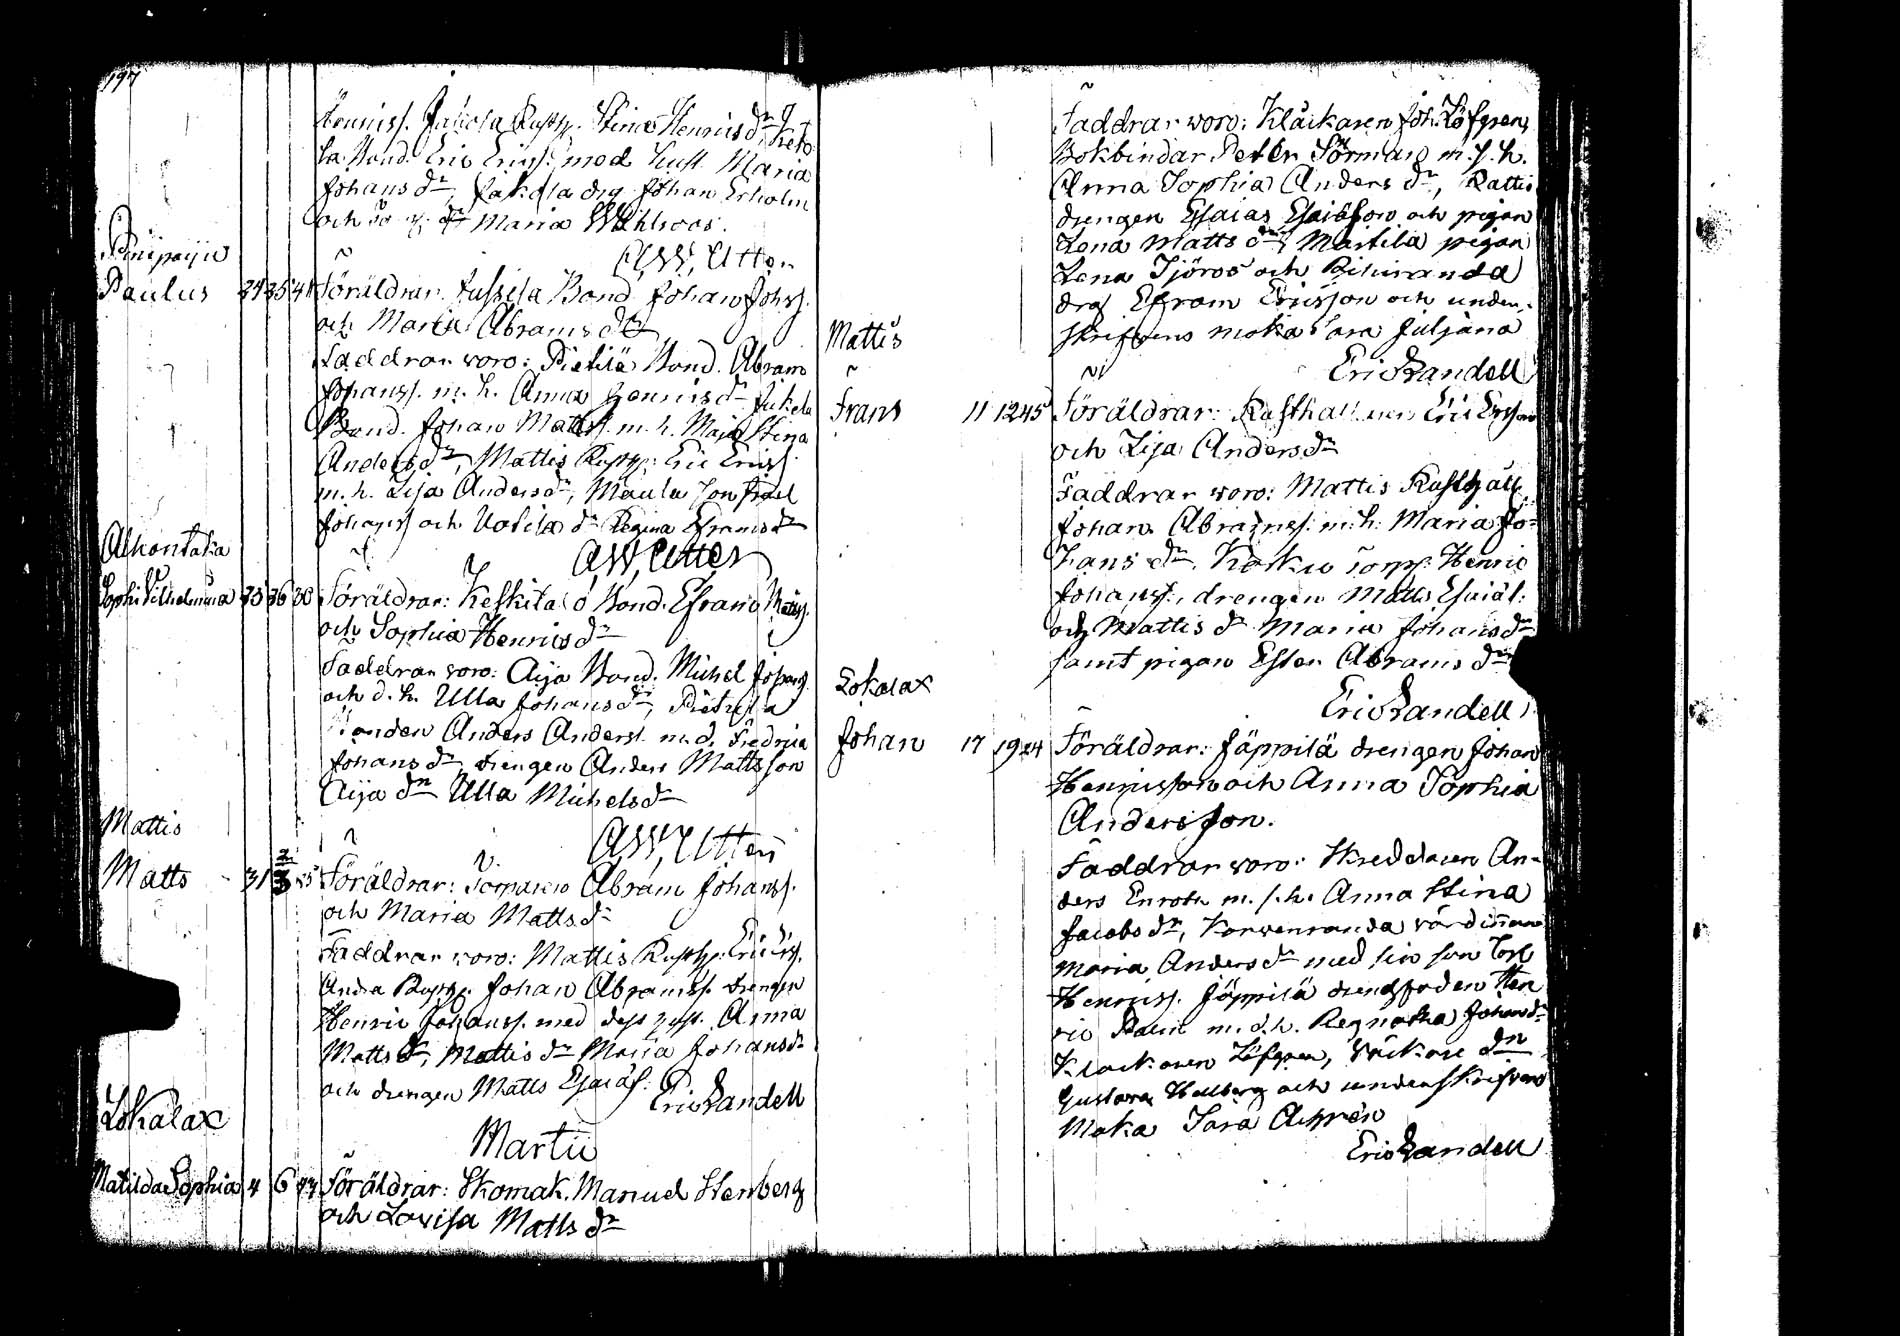 197
Henriss. Jakola Rusth. Stina Henrics dr, Keko
la Bond. Eric Erics. med Hust. Maria
Johans dr, Jakola drg Johan Erholm
och dr Maria Wahlroos.
A W Utter
Pinipayu
Paulus 24 25 41 Föräldrar: Jussila Bond Johan Johss.
och Maria Abrams dr
Faddrar voro: Pietilä Bond. Abram
Johanss. m. h. Anna Henrics dr Jukola
Bond. Johan Matts. m. h. Maja Stina
Anders dr, Mattis Rusth: Eric Erics
m. h. Lisa Anders dr, Maula son Isael
Johanss och Uotila dr Regina Eframs dr
A W Utter
Alhontaka
Sophia Vilhelmina 25 26 30 Föräldrar: Keskitalo Bond. Efraim Matts.
och Sophia Henrics dr
Faddrar voro: Aija Bond. Michel Johans.
och d. h. Ulla Johans dr, Pietilä
Bonden Anders Anderss. m. d. Fredrica
Johans dr, drengen Anders Mattsson
Aija dr Ulla Michels dr
A W Utter
Mattis
Matts 31 2/3 25 Föräldrar: Torparen Abram Johanss.
och Maria Matts dr
Faddrar voro: Mattis Rusth: Eric Ers.
Andra Rusth. Johan Abramss. drengen
Henric Johanss. med dess hust. Anna
Matts dr, Mattis dr Maria Johans dr
och drengen Matts Esaiäs:
Eric Randell
Lokalax
Martii
Matilda Sophia 4 6 Föräldrar: Skomak. Manuel Stenberg
och Lovisa Matts dr
Faddrar voro: Klåckaren Joh: Löfgren,
Bokbindar Peter Sörman m. s. h.
Anna Sophia Anders dr, Mattis
drengen Esaias Esaiasson och pigan
Lena Matts dr, Martila pigan
Lena Sjöroos och Rihiranda
drg Efram Ericsson och under-
skrifvens maka Sara Juliana
Eric Randell
Mattis
Frans 11 12 45 Föräldrar: Rusthållaren Eric Ersson
och Lisa Anders dr
Faddrar voro: Mattis Rusthåll
Johan Abramss. m. h. Maria Jo-
hans dr. Kokko Torp: Henric
Johanss., drengen Matts Esaiäs:
och Mattis dr Maria Johans dr
samt pigan Ester Abrams dr
Eric Randell
Lokalax
Johan 17 19 24 Föräldrar: Jäppilä drengen Johan
Henricsson och Anna Sophia
Andersson.
Faddrar voro: Skreddaren An-
ders Enroth m. s. h. Anna Stina
Jacobs dr, Korvenranda värdinnan
Maria Anders dr med sin son Carl
Henriss. Jäppilä drengfoden Hen
ric Palin m. d. h. Regina Johans dr
Klockaren Löfgren, Väckare dn
Gustava Hallberg och underskrifvens
Maka Sara Achrén
Eric Randell